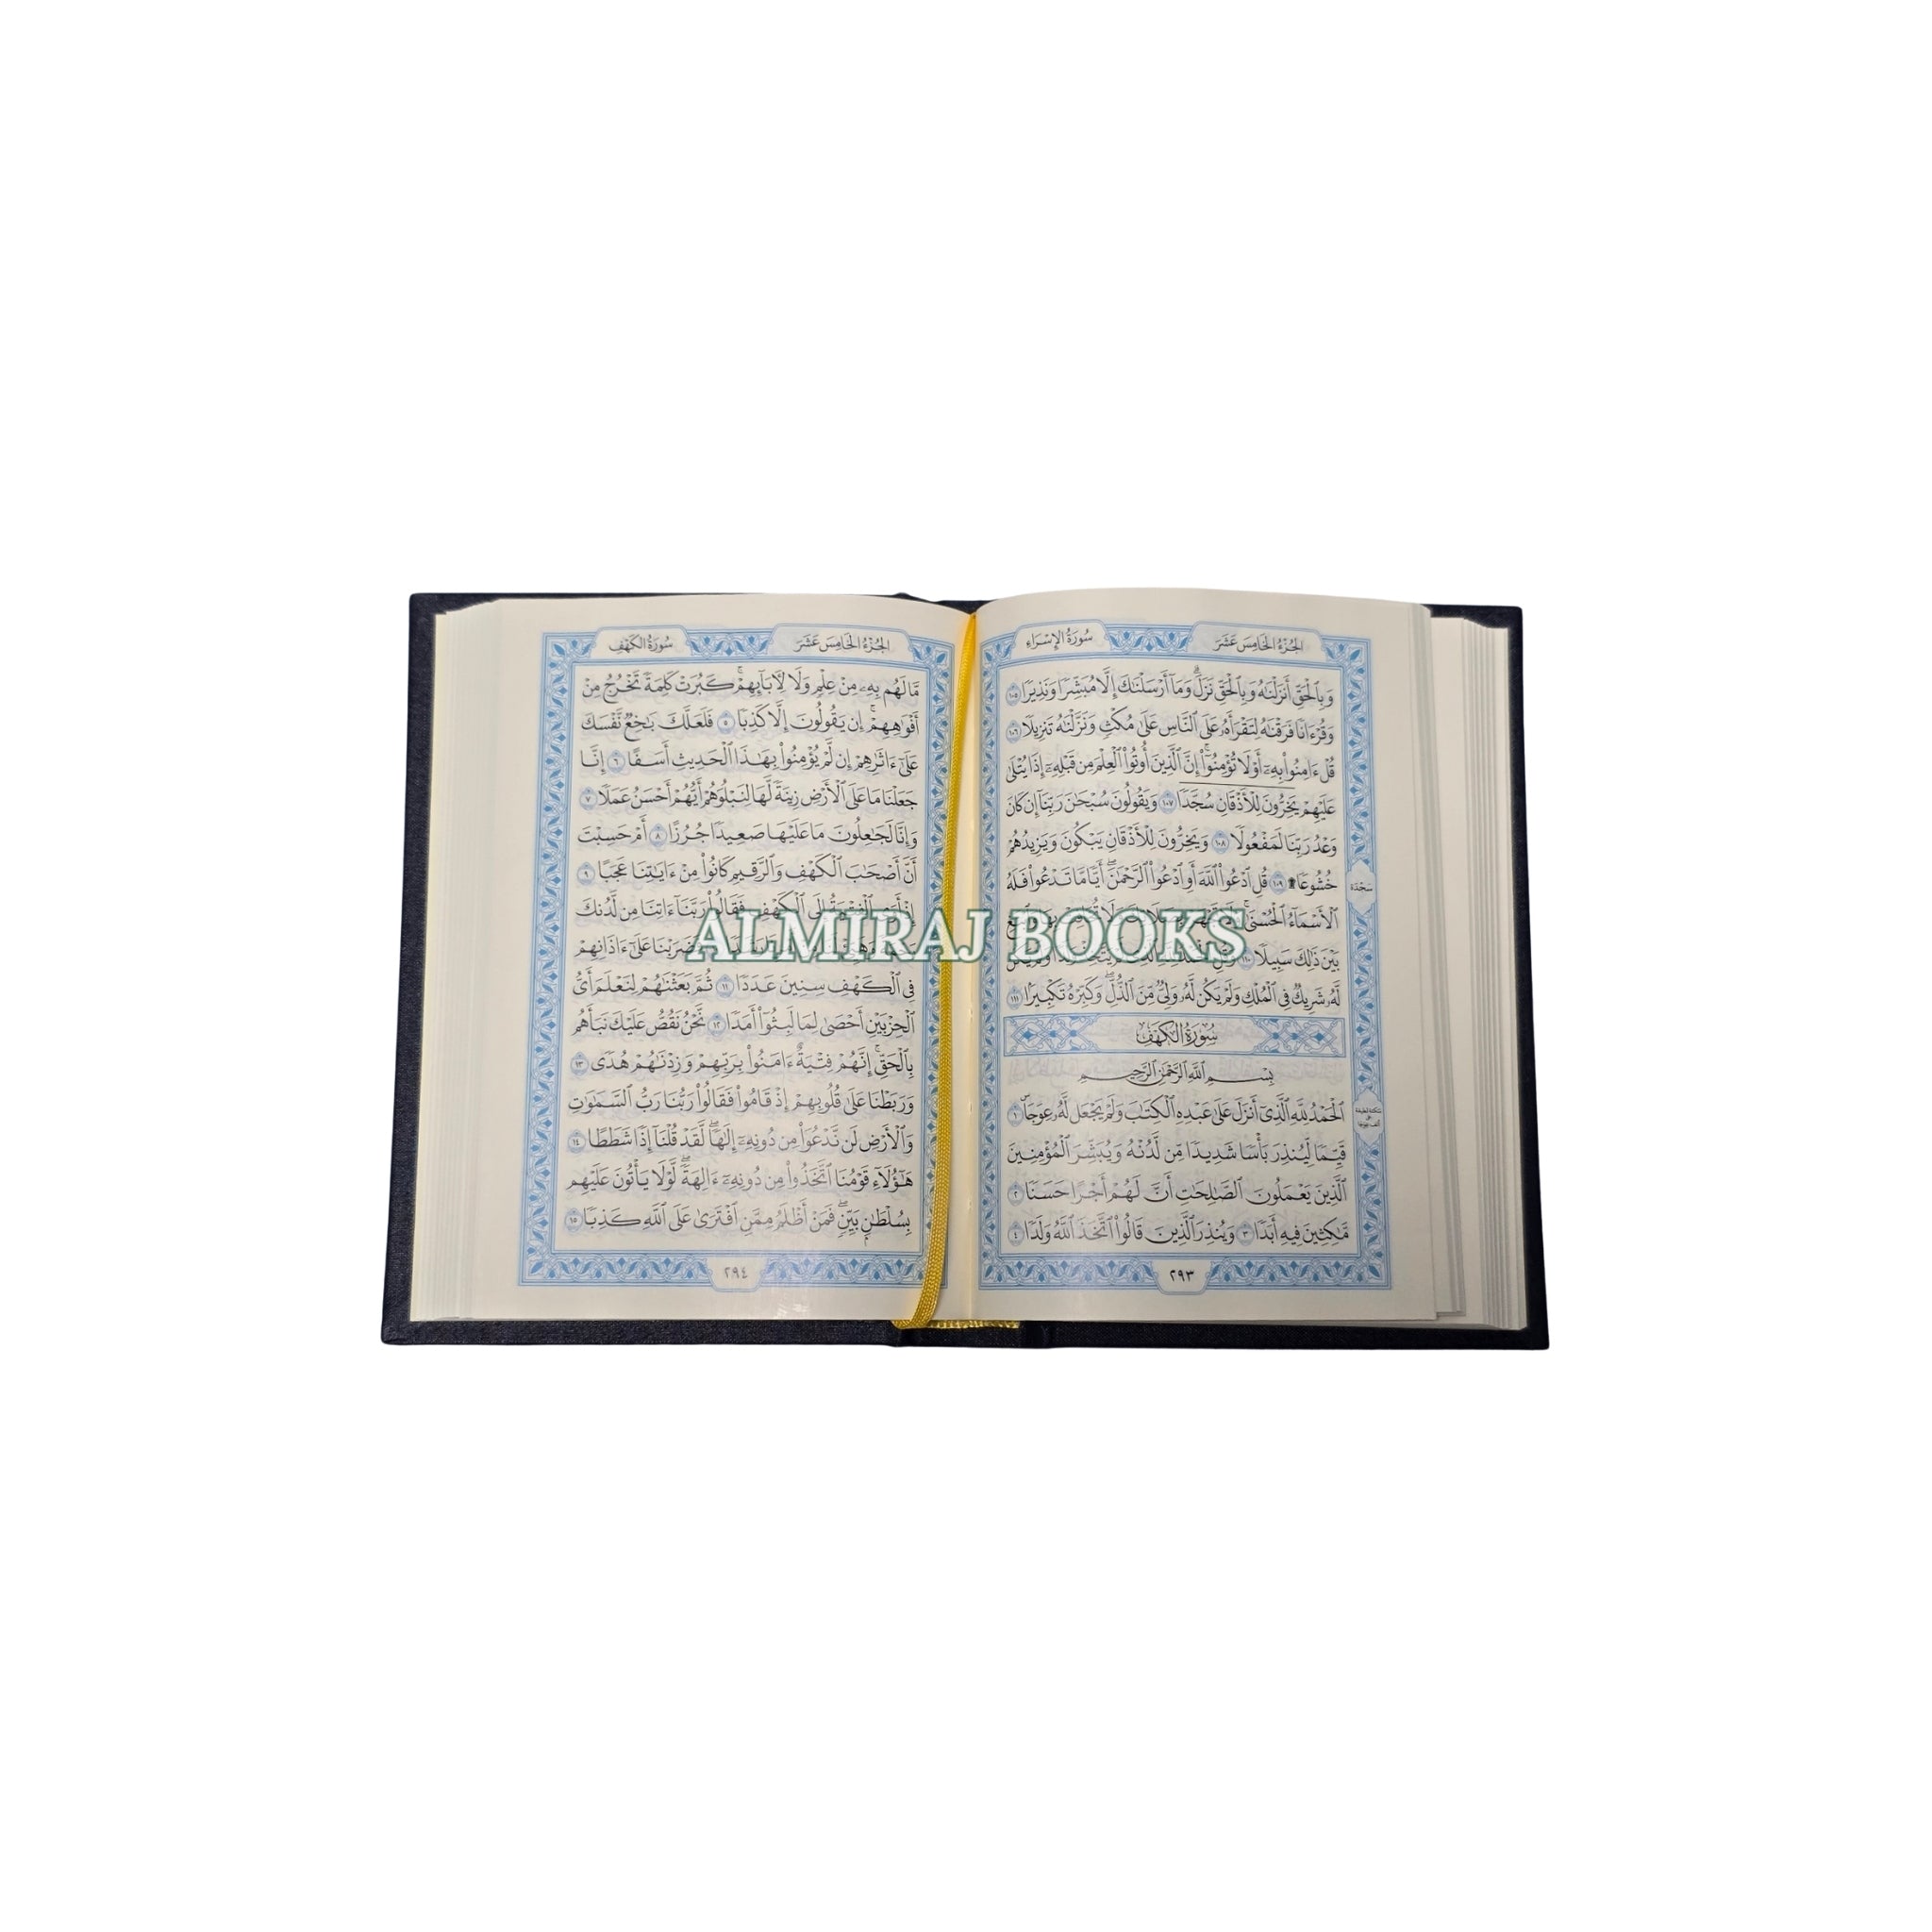 الجُزْءُ الخَامِسَ عَشَرَ
سُورَةُ الإِسْرَاءِ
وَبِٱلْحَقِّ أَنزَلْنَٰهُ وَبِٱلْحَقِّ نَزَلَ ۗ وَمَآ أَرْسَلْنَٰكَ إِلَّا مُبَشِّرًا وَنَذِيرًا ١٠٥
وَقُرْءَانًا فَرَقْنَٰهُ لِتَقْرَأَهُۥ عَلَى ٱلنَّاسِ عَلَىٰ مُكْثٍ وَنَزَّلْنَٰهُ تَنزِيلًا ١٠٦
قُلْ ءَامِنُوا۟ بِهِۦٓ أَوْ لَا تُؤْمِنُوٓا۟ ۚ إِنَّ ٱلَّذِينَ أُوتُوا۟ ٱلْعِلْمَ مِن قَبْلِهِۦٓ إِذَا يُتْلَىٰ
عَلَيْهِمْ يَخِرُّونَ لِلْأَذْقَانِ سُجَّدًا ١٠٧ وَيَقُولُونَ سُبْحَٰنَ رَبِّنَآ إِن كَانَ
وَعْدُ رَبِّنَا لَمَفْعُولًا ١٠٨ وَيَخِرُّونَ لِلْأَذْقَانِ يَبْكُونَ وَيَزِيدُهُمْ
خُشُوعًا ۩ ١٠٩ قُلِ ٱدْعُوا۟ ٱللَّهَ أَوِ ٱدْعُوا۟ ٱلرَّحْمَٰنَ ۖ أَيًّا مَّا تَدْعُوا۟ فَلَهُ
سَجْدَة
ٱلْأَسْمَآءُ ٱلْحُسْنَىٰ ۚ
ALMIRAJ BOOKS
بَيْنَ ذَٰلِكَ سَبِيلًا ١١٠
لَّهُۥ شَرِيكٌ فِى ٱلْمُلْكِ وَلَمْ يَكُن لَّهُۥ وَلِىٌّ مِّنَ ٱلذُّلِّ ۖ وَكَبِّرْهُ تَكْبِيرًۢا ١١١
سُورَةُ الكَهْفِ
بِسْمِ ٱللَّهِ ٱلرَّحْمَٰنِ ٱلرَّحِيمِ
ٱلْحَمْدُ لِلَّهِ ٱلَّذِىٓ أَنزَلَ عَلَىٰ عَبْدِهِ ٱلْكِتَٰبَ وَلَمْ يَجْعَل لَّهُۥ عِوَجَاۜ ١
قَيِّمًا لِّيُنذِرَ بَأْسًا شَدِيدًا مِّن لَّدُنْهُ وَيُبَشِّرَ ٱلْمُؤْمِنِينَ
ٱلَّذِينَ يَعْمَلُونَ ٱلصَّٰلِحَٰتِ أَنَّ لَهُمْ أَجْرًا حَسَنًا ٢
مَّٰكِثِينَ فِيهِ أَبَدًا ٣ وَيُنذِرَ ٱلَّذِينَ قَالُوا۟ ٱتَّخَذَ ٱللَّهُ وَلَدًا ٤
٢٩٣
الجُزْءُ الخَامِسَ عَشَرَ
سُورَةُ الكَهْفِ
مَّا لَهُم بِهِۦ مِنْ عِلْمٍ وَلَا لِـَٔابَآئِهِمْ ۚ كَبُرَتْ كَلِمَةً تَخْرُجُ مِنْ
أَفْوَٰهِهِمْ ۚ إِن يَقُولُونَ إِلَّا كَذِبًا ٥ فَلَعَلَّكَ بَٰخِعٌ نَّفْسَكَ
عَلَىٰٓ ءَاثَٰرِهِمْ إِن لَّمْ يُؤْمِنُوا۟ بِهَٰذَا ٱلْحَدِيثِ أَسَفًا ٦ إِنَّا
جَعَلْنَا مَا عَلَى ٱلْأَرْضِ زِينَةً لَّهَا لِنَبْلُوَهُمْ أَيُّهُمْ أَحْسَنُ عَمَلًا ٧
وَإِنَّا لَجَٰعِلُونَ مَا عَلَيْهَا صَعِيدًا جُرُزًا ٨ أَمْ حَسِبْتَ
أَنَّ أَصْحَٰبَ ٱلْكَهْفِ وَٱلرَّقِيمِ كَانُوا۟ مِنْ ءَايَٰتِنَا عَجَبًا ٩
إِذْ أَوَى ٱلْفِتْيَةُ إِلَى ٱلْكَهْفِ فَقَالُوا۟ رَبَّنَآ ءَاتِنَا مِن لَّدُنكَ
فَضَرَبْنَا عَلَىٰٓ ءَاذَانِهِمْ
فِى ٱلْكَهْفِ سِنِينَ عَدَدًا ١١ ثُمَّ بَعَثْنَٰهُمْ لِنَعْلَمَ أَىُّ
ٱلْحِزْبَيْنِ أَحْصَىٰ لِمَا لَبِثُوٓا۟ أَمَدًا ١٢ نَّحْنُ نَقُصُّ عَلَيْكَ نَبَأَهُم
بِٱلْحَقِّ ۚ إِنَّهُمْ فِتْيَةٌ ءَامَنُوا۟ بِرَبِّهِمْ وَزِدْنَٰهُمْ هُدًى ١٣
وَرَبَطْنَا عَلَىٰ قُلُوبِهِمْ إِذْ قَامُوا۟ فَقَالُوا۟ رَبُّنَا رَبُّ ٱلسَّمَٰوَٰتِ
وَٱلْأَرْضِ لَن نَّدْعُوَا۟ مِن دُونِهِۦٓ إِلَٰهًا ۖ لَّقَدْ قُلْنَآ إِذًا شَطَطًا ١٤
هَٰٓؤُلَآءِ قَوْمُنَا ٱتَّخَذُوا۟ مِن دُونِهِۦٓ ءَالِهَةً ۖ لَّوْلَا يَأْتُونَ عَلَيْهِم
بِسُلْطَٰنٍۭ بَيِّنٍ ۖ فَمَنْ أَظْلَمُ مِمَّنِ ٱفْتَرَىٰ عَلَى ٱللَّهِ كَذِبًا ١٥
٢٩٤